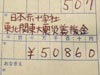 507
日本赤十字社
東北関東大震災義援金
¥50860